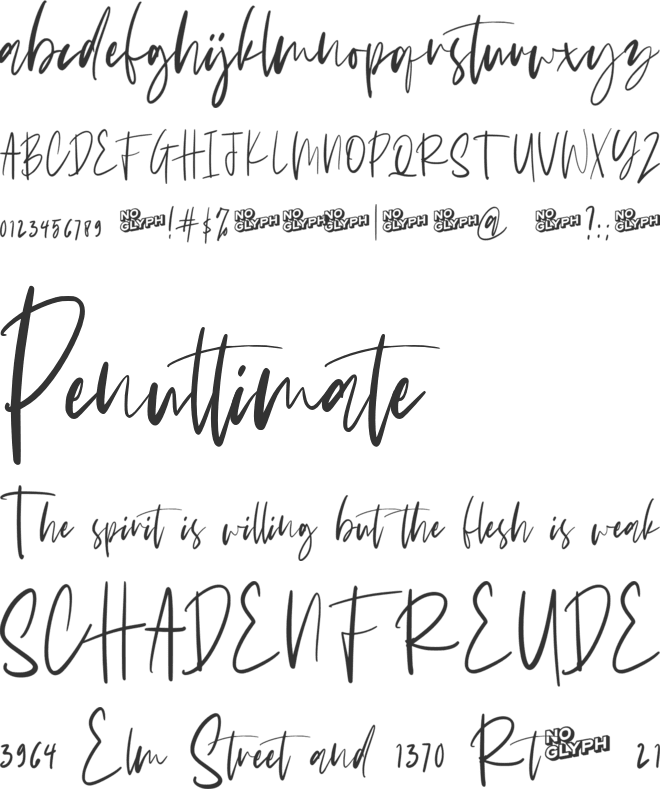 abcdefghijklmnopqrstuvwxyz
ABCDEFGHIJKLMNOPQRSTUVWXYZ
0123456789 NO GLYPH!#$%NO GLYPH NO GLYPH NO GLYPH|NO GLYPH NO GLYPH@ NO GLYPH?:;NO GLYPH
Penultimate
The spirit is willing but the flesh is weak
SCHADENFREUDE
3964 Elm Street and 1370 RtNO GLYPH 21